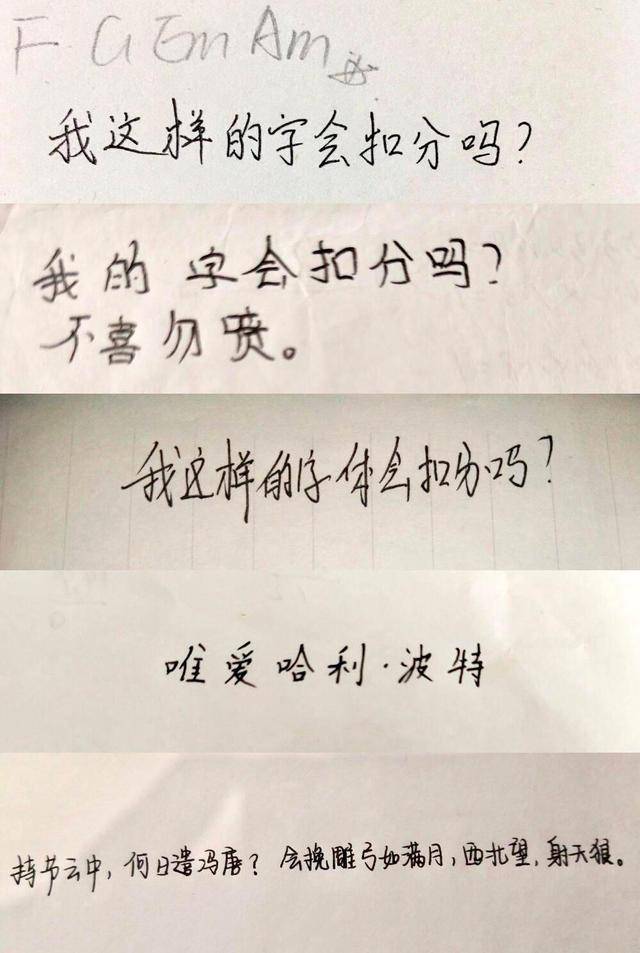 F G Em Am
我这样的字会扣分吗？
我的 字会扣分吗？
不喜勿喷。
我这样的字体会扣分吗？
唯爱哈利·波特
持节云中，何日遣冯唐？会挽雕弓如满月，西北望，射天狼。